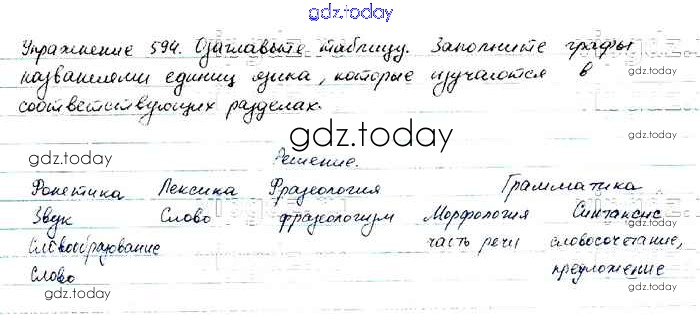 gdz.today
Упражнение 594. Озаглавьте таблицу. Заполните графы
gdz.today
названиями единиц языка, которые изучаются в
gdz.today
соответствующих разделах.
gdz.today
gdz.today
gdz.today
Решение.
Фонетика Лексика Фразеология Грамматика
Звук Слово фразеологизм Морфология Синтаксис
Словообразование часть речи словосочетание,
Слово предложение
gdz.today
gdz.today